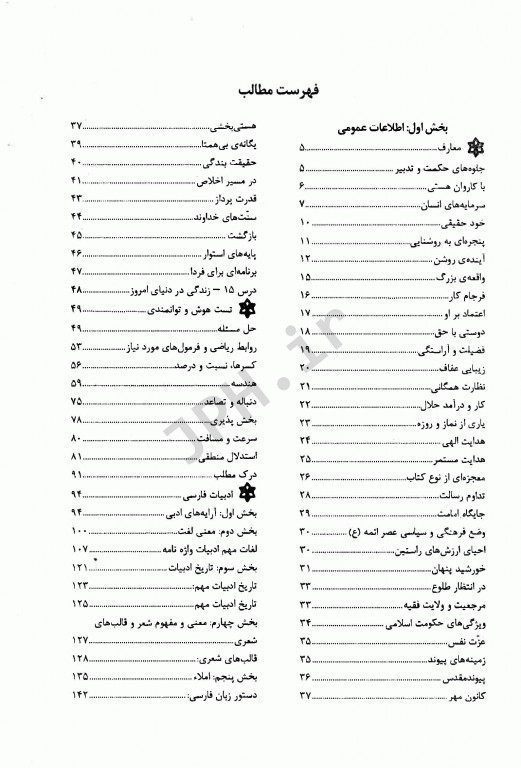 فهرست مطالب
بخش اول: اطلاعات عمومی
معارف ۵
جلوه‌های حکمت و تدبیر ۵
با کاروان هستی ۶
سرمایه‌های انسان ۷
خود حقیقی ۱۰
پنجره‌ای به روشنایی ۱۱
آینده‌ی روشن ۱۲
واقعه‌ی بزرگ ۱۵
فرجام کار ۱۶
اعتماد بر او ۱۷
دوستی با حق ۱۸
فضیلت و آراستگی ۱۹
زیبایی عفاف ۲۰
نظارت همگانی ۲۱
کار و درآمد حلال ۲۲
یاری از نماز و روزه ۲۳
هدایت الهی ۲۴
هدایت مستمر ۲۵
معجزه‌ای از نوع کتاب ۲۶
تداوم رسالت ۲۸
جایگاه امامت ۲۹
وضع فرهنگی و سیاسی عصر ائمه (ع) ۳۰
احیای ارزش‌های راستین ۳۰
خورشید پنهان ۳۱
در انتظار طلوع ۳۳
مرجعیت و ولایت فقیه ۳۳
ویژگی‌های حکومت اسلامی ۳۴
عزّت نفس ۳۵
زمینه‌های پیوند ۳۵
پیوندمقدس ۳۶
کانون مهر ۳۷
هستی‌بخشی ۳۷
یگانه‌ی بی‌همتا ۳۹
حقیقت بندگی ۴۰
در مسیر اخلاص ۴۱
قدرت پرداز ۴۳
سنّت‌های خداوند ۴۴
بازگشت ۴۵
پایه‌های استوار ۴۶
برنامه‌ای برای فردا ۴۷
درس ۱۵ – زندگی در دنیای امروز ۴۸
تست هوش و توانمندی ۴۹
حل مسئله ۴۹
روابط ریاضی و فرمول‌های مورد نیاز ۵۳
کسرها، نسبت و درصد ۵۶
هندسه ۵۹
دنباله و تصاعد ۷۵
بخش پذیری ۷۸
سرعت و مسافت ۸۰
استدلال منطقی ۸۱
درک مطلب ۹۱
ادبیات فارسی ۹۴
بخش اول: آرایه‌های ادبی ۹۴
بخش دوم: معنی لغت ۱۰۰
لغات مهم ادبیات واژه نامه ۱۰۷
بخش سوم: تاریخ ادبیات ۱۲۱
تاریخ ادبیات مهم: ۱۲۳
تاریخ ادبیات مهم ۱۲۵
بخش چهارم: معنی و مفهوم شعر و قالب‌های
شعری ۱۲۷
قالب‌های شعری: ۱۲۸
بخش پنجم: املاء ۱۳۵
دستور زبان فارسی: ۱۴۲
JPH.ir